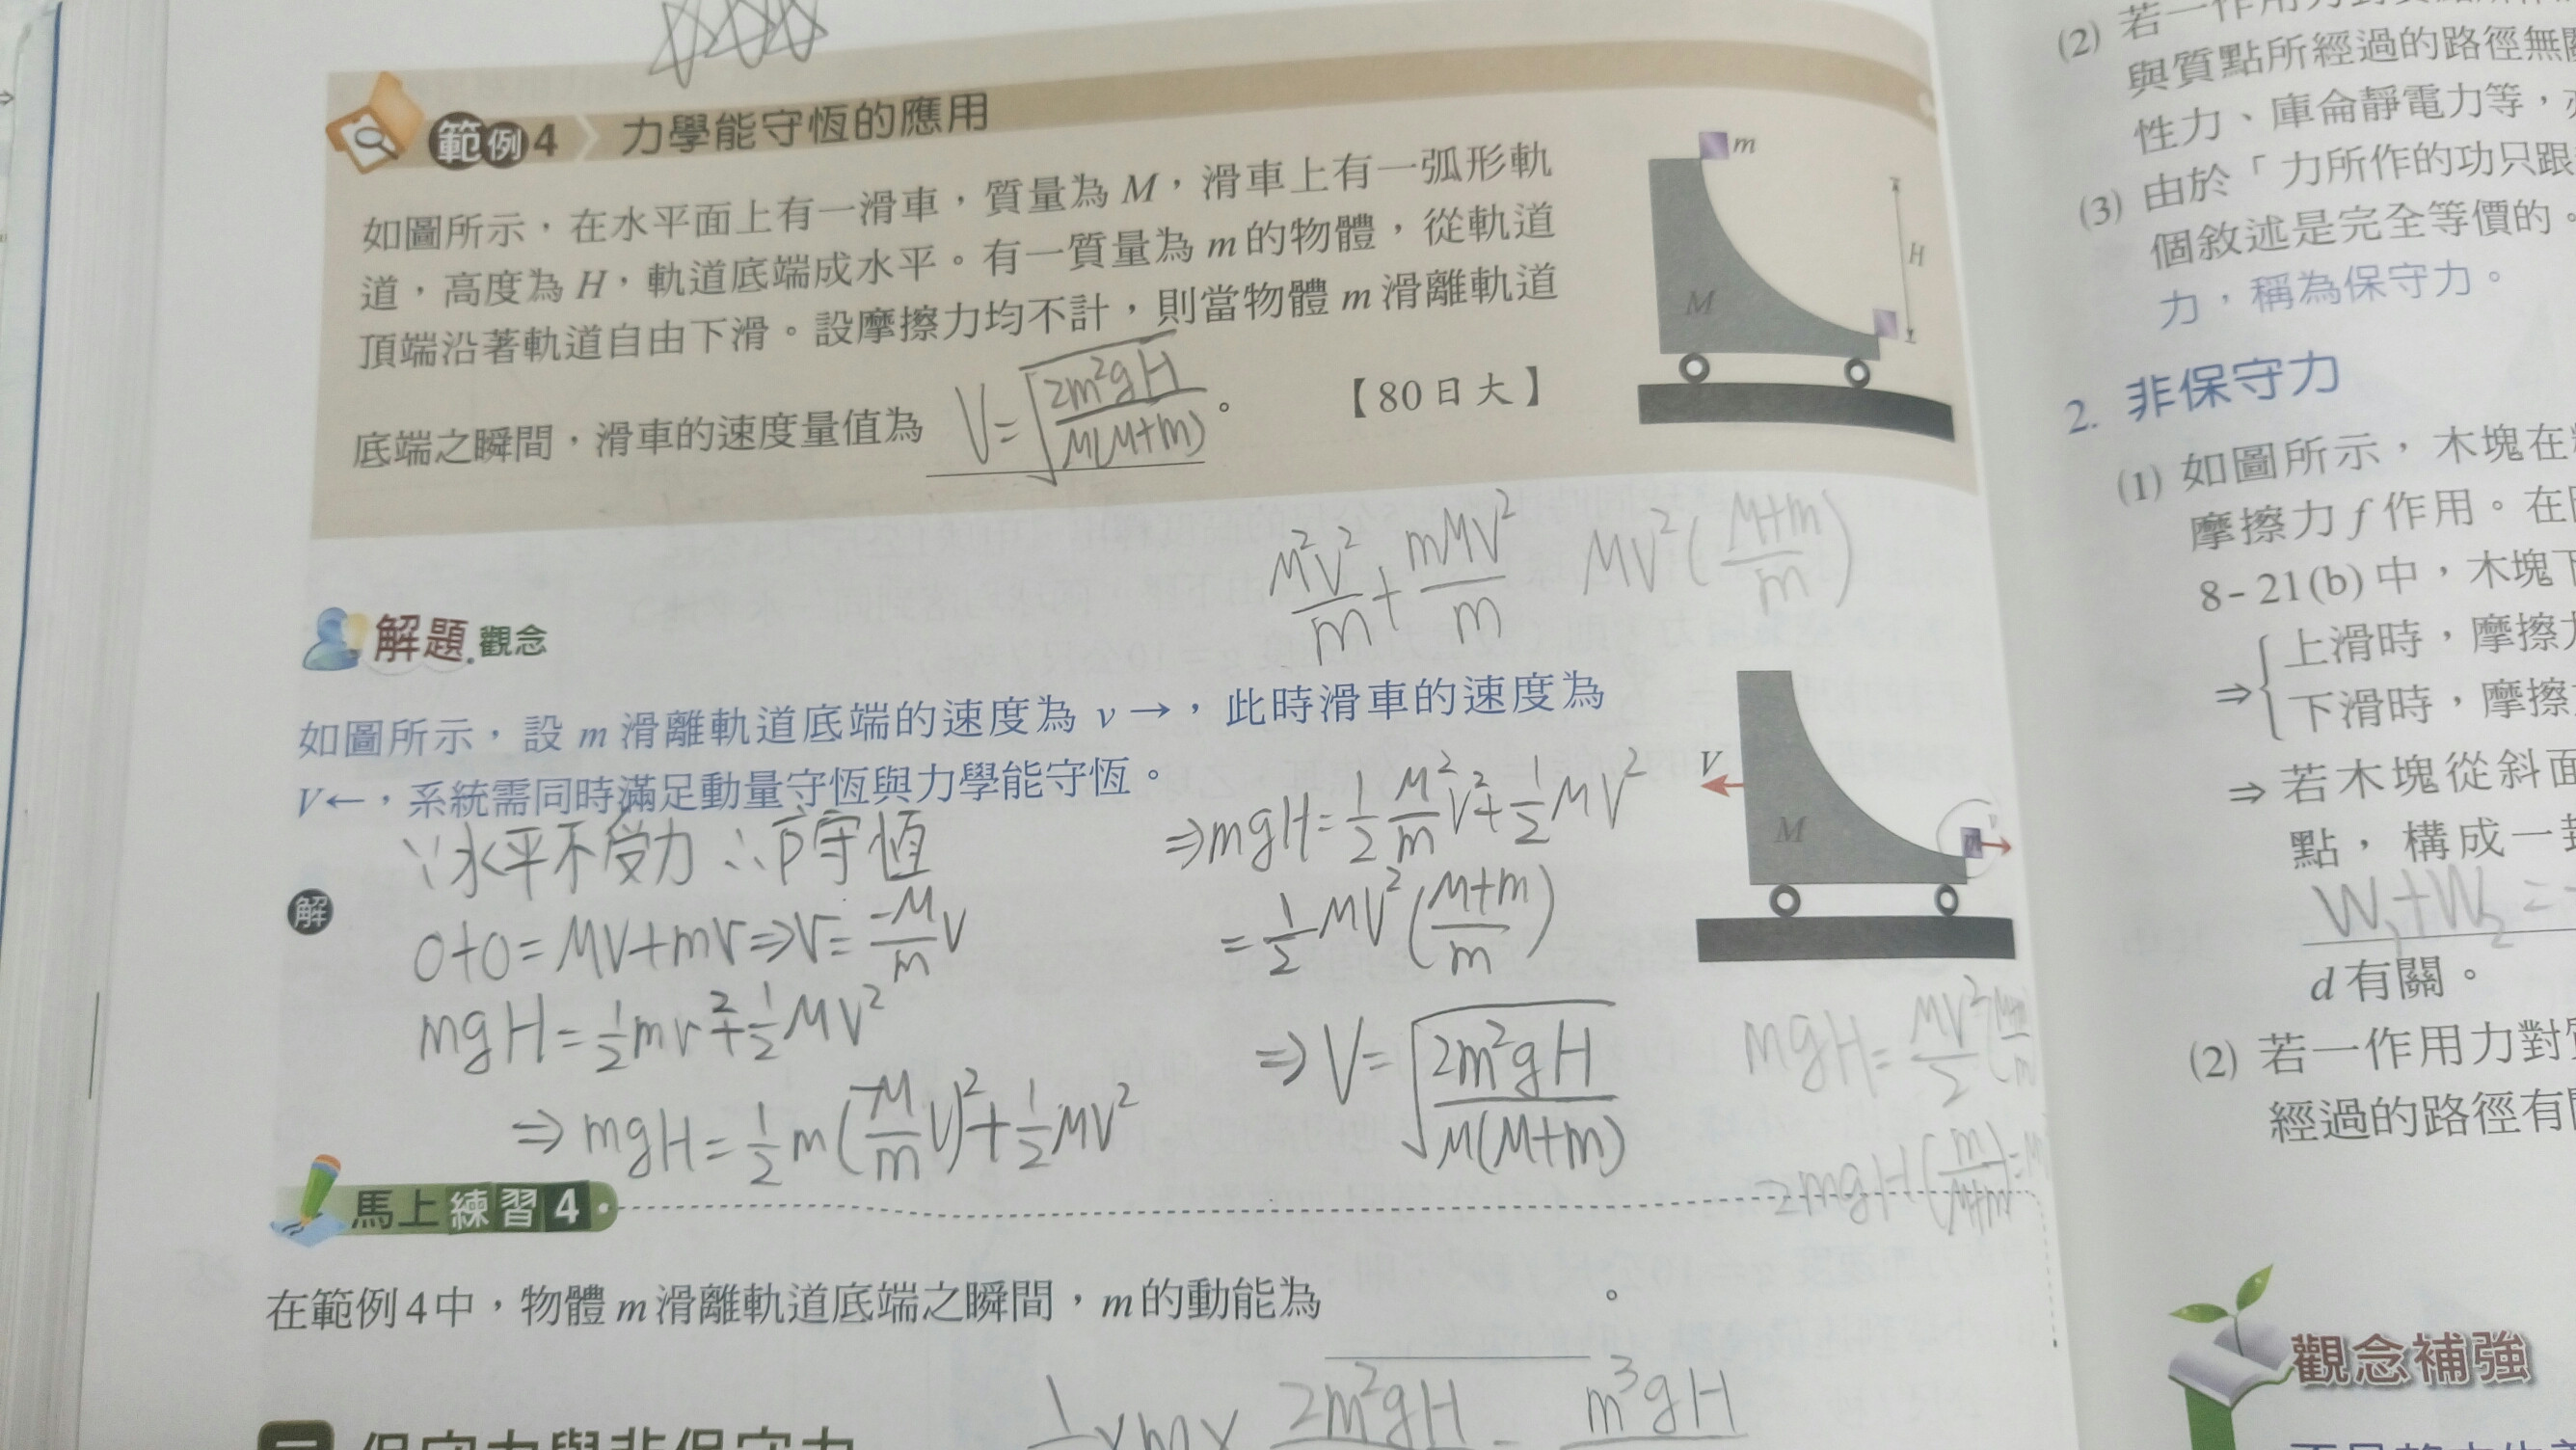 範例4 力學能守恆的應用
如圖所示，在水平面上有一滑車，質量為 M，滑車上有一弧形軌
道，高度為 H，軌道底端成水平。有一質量為 m 的物體，從軌道
頂端沿著軌道自由下滑。設摩擦力均不計，則當物體 m 滑離軌道
底端之瞬間，滑車的速度量值為 V=√(2m²gH/M(M+m))。 【80日大】
m
H
M
M²V²/m + mMV²/m MV²(M+m/m)
解題觀念
如圖所示，設 m 滑離軌道底端的速度為 v→，此時滑車的速度為
V←，系統需同時滿足動量守恆與力學能守恆。
∵水平不受力 ∴P守恆
解
0+0=MV+mv⇒v=-M/m V
mgH=½mv²+½MV²
⇒mgH=½m(-M/m V)²+½MV²
⇒mgH=½ M²/m V²+½MV²
=½MV²(M+m/m)
⇒V=√(2m²gH/M(M+m))
V
M
mgH=MV²/2
2mgH(m/M+m)=
馬上練習4
在範例4中，物體 m 滑離軌道底端之瞬間，m 的動能為　　　。
2m²gH m³gH
(2) 若一作用力對
與質點所經過的路徑無
性力、庫侖靜電力等，
(3) 由於「力所作的功只跟
個敘述是完全等價的。
力，稱為保守力。
2. 非保守力
(1) 如圖所示，木塊在
摩擦力 f 作用。在
8-21(b)中，木塊下
⇒ 上滑時，摩擦力
下滑時，摩擦
⇒ 若木塊從斜面
點，構成一
W₁+W₂=
d 有關。
(2) 若一作用力對
經過的路徑有
觀念補強